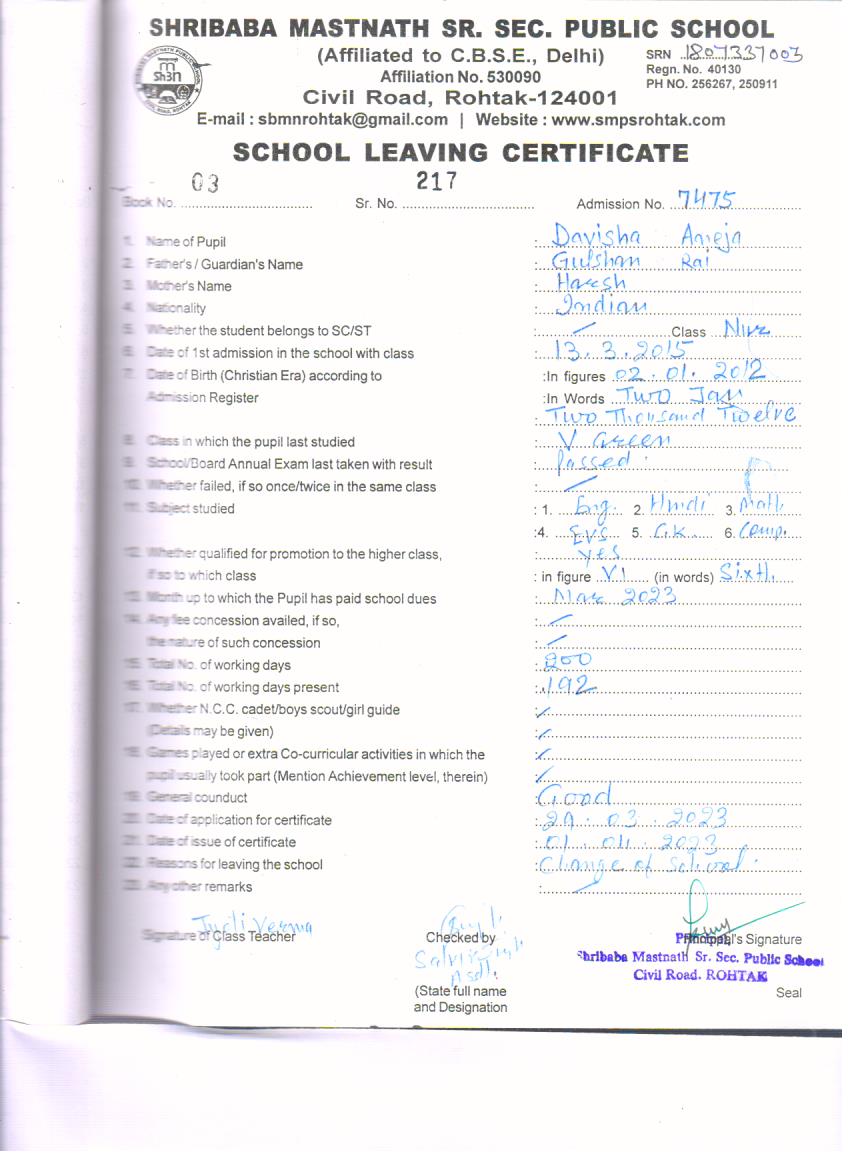 SHRIBABA MASTNATH SR. SEC. PUBLIC SCHOOL
(Affiliated to C.B.S.E., Delhi)
SRN 1807337003
Affiliation No. 530090
Regn. No. 40130
Civil Road, Rohtak-124001
PH NO. 256267, 250911
E-mail : sbmnrohtak@gmail.com | Website : www.smpsrohtak.com
SCHOOL LEAVING CERTIFICATE
Book No. 03 Sr. No. 217 Admission No. 7475
1. Name of Pupil : Davisha Aneja
2. Father's / Guardian's Name : Gulshan Rai
3. Mother's Name :
4. Nationality : Indian
5. Whether the student belongs to SC/ST : / Class
6. Date of 1st admission in the school with class : 13.3.2015
7. Date of Birth (Christian Era) according to :In figures 02.01.2012
Admission Register :In Words Two Jan
: Two Thousand Twelve
8. Class in which the pupil last studied : V Green
9. School/Board Annual Exam last taken with result : Passed
10. Whether failed, if so once/twice in the same class : /
11. Subject studied : 1. Eng. 2. Hindi 3. Math
:4. EVS 5. G.K. 6. Comp.
12. Whether qualified for promotion to the higher class, : yes
if so to which class : in figure VI (in words) Sixth
13. Month up to which the Pupil has paid school dues : Mar 2023
14. Any fee concession availed, if so, : /
the nature of such concession : /
15. Total No. of working days : 200
16. Total No. of working days present : 192
17. Whether N.C.C. cadet/boys scout/girl guide : /
(Details may be given) : /
18. Games played or extra Co-curricular activities in which the : /
pupil usually took part (Mention Achievement level, therein) : /
19. General counduct : Good
20. Date of application for certificate : 29.03.2023
21. Date of issue of certificate : 01.04.2023
22. Reasons for leaving the school : Change of School.
23. Any other remarks : /
Jyoti Verma
Signature of Class Teacher Checked by Principal's Signature
Shribaba Mastnath Sr. Sec. Public School
Civil Road. ROHTAK
(State full name Seal
and Designation